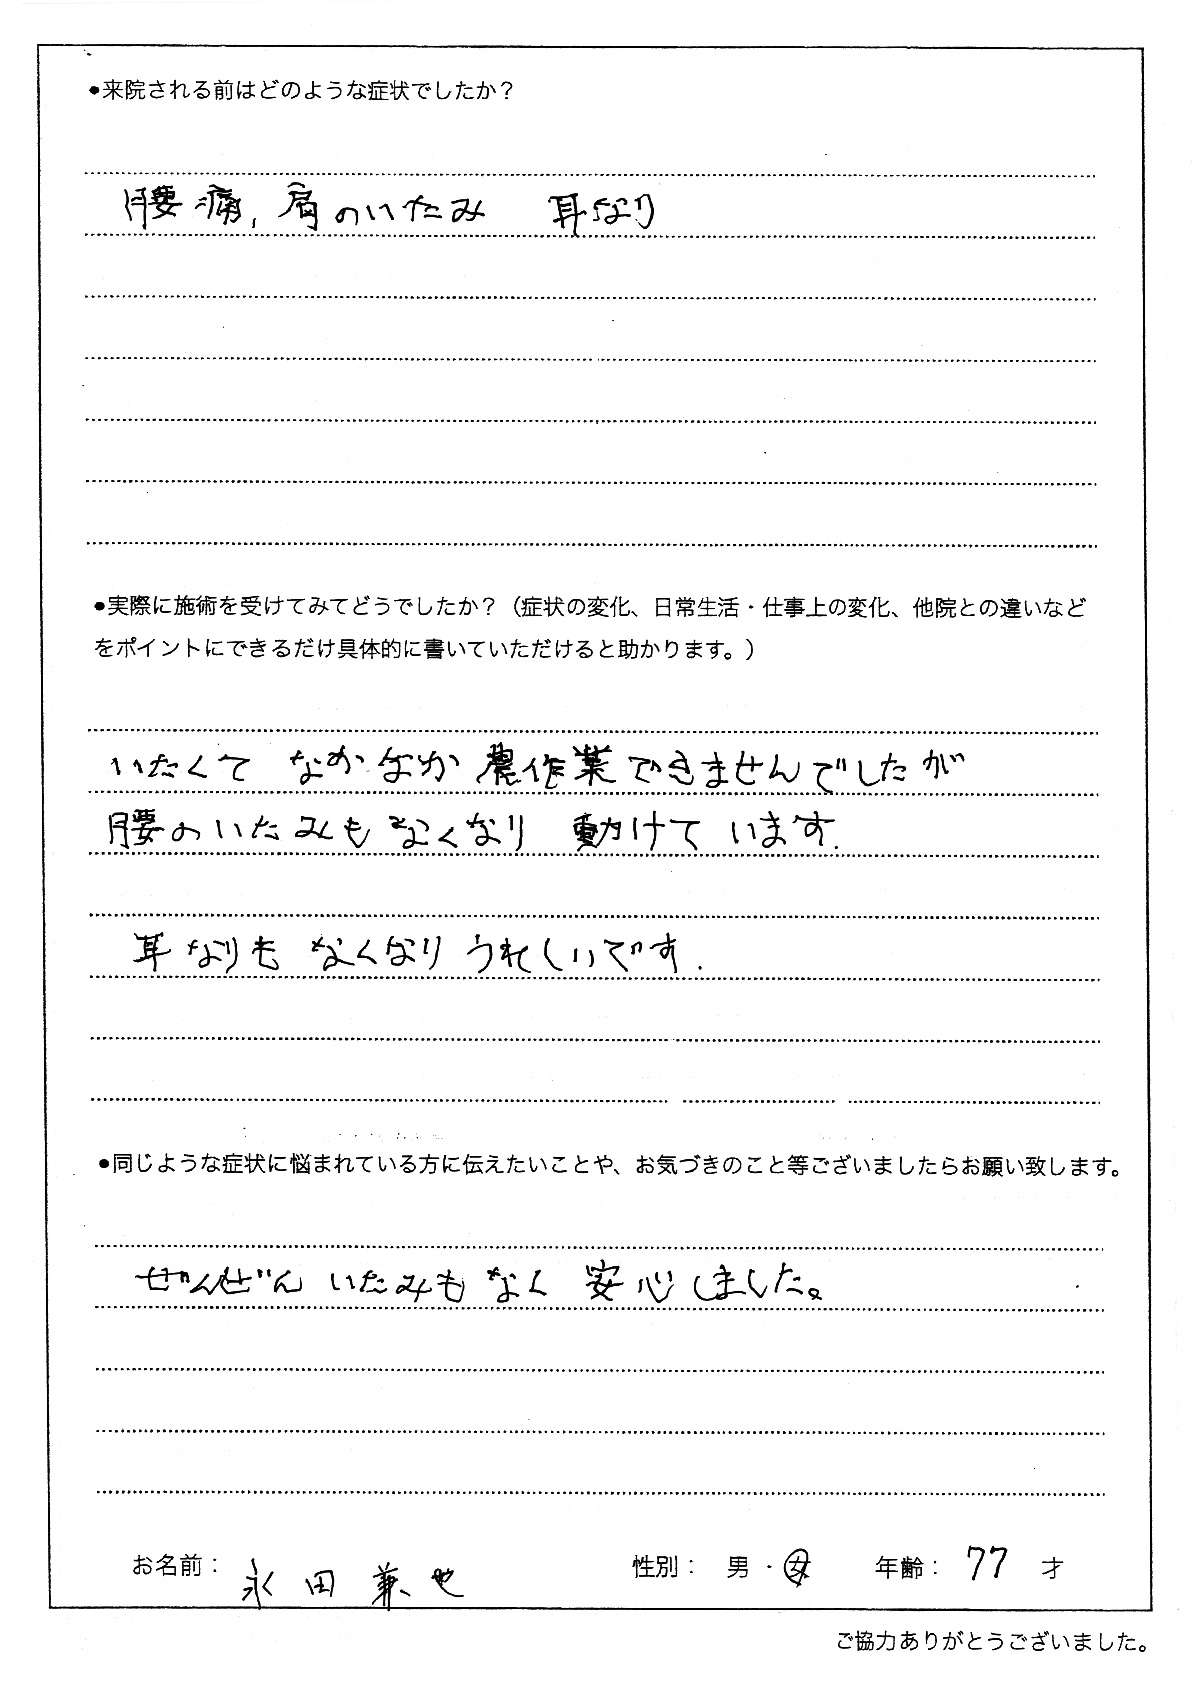 ●来院される前はどのような症状でしたか？
腰痛, 肩のいたみ　耳なり
●実際に施術を受けてみてどうでしたか？（症状の変化、日常生活・仕事上の変化、他院との違いなど
をポイントにできるだけ具体的に書いていただけると助かります。）
いたくて なかなか 農作業できませんでしたが
腰のいたみも なくなり 動けて います.
耳なりも なくなり うれしいです.
●同じような症状に悩まれている方に伝えたいことや、お気づきのこと等ございましたらお願い致します。
ぜんぜん いたみも なく 安心しました。
お名前： 永田 兼也　性別： 男 ・ 女　年齢： 77 才
ご協力ありがとうございました。